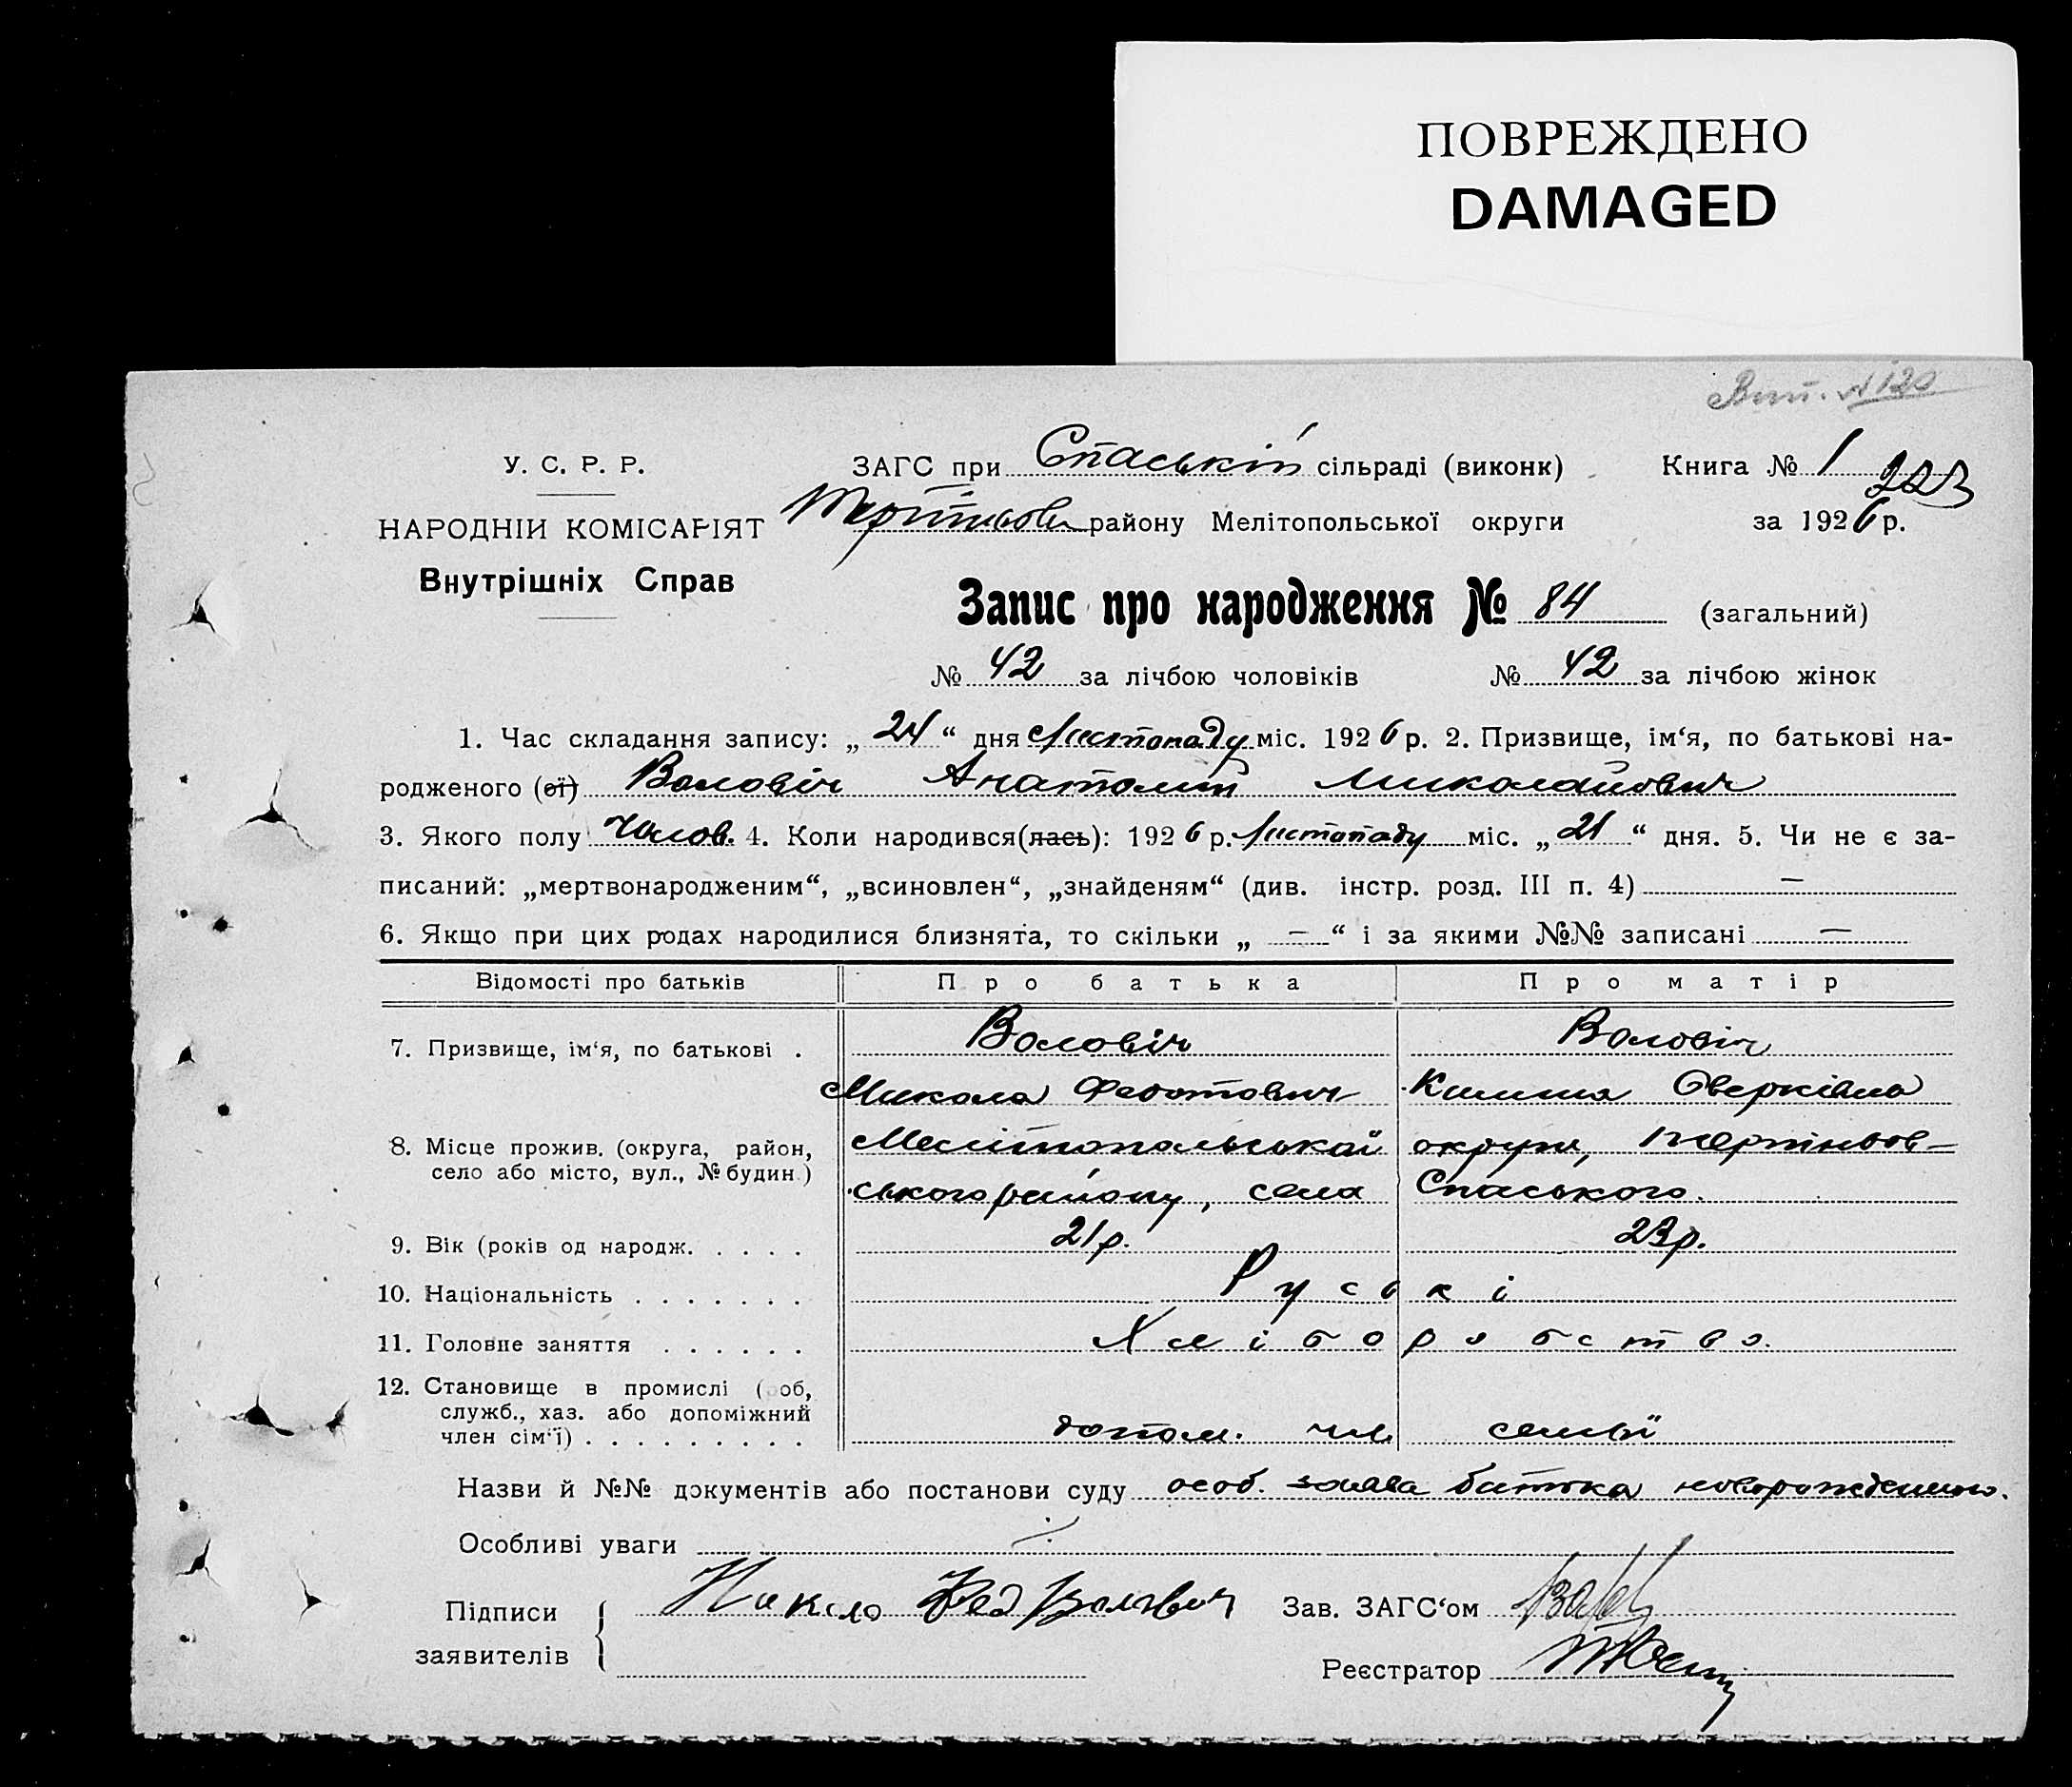 ПОВРЕЖДЕНО
DAMAGED
У. С. Р. Р.
НАРОДНІЙ КОМІСАРІЯТ
Внутрішніх Справ
ЗАГС при Спаській сільраді (виконк)
району Мелітопольської округи
Книга № 1
223
за 1926 р.
Запис про народження № 84 (загальний)
№ 42 за лічбою чоловіків № 42 за лічбою жінок
1. Час складання запису: „24“ дня Листопаду міс. 1926 р. 2. Призвище, ім‘я, по батькові на-
родженого (ої) Воловіч Анатолий Миколайович
3. Якого полу Чолов. 4. Коли народився(лась): 1926 р. Листопаду міс. „21“ дня. 5. Чи не є за-
писаний: „мертвонародженим“, „всиновлен“, „знайденям“ (див. інстр. розд. III п. 4) —
6. Якщо при цих родах народилися близнята, то скільки „ — “ і за якими №№ записані —
Відомості про батьків Про батька Про матір
7. Призвище, ім‘я, по батькові . Воловіч Воловіч
Микола Федотович Оверківна
8. Місце прожив. (округа, район, село або місто, вул., № будин.) Мелітопольськоі округи,
ського району, села Спаського.
9. Вік (років од народж. . . . . 21 р. 23 р.
10. Національність . . . . . . . Руські
11. Головне заняття . . . . . . Хліборобство.
12. Становище в промислі ( об,
служб., хаз. або допоміжний
член сім‘ї) . . . . . . . . . допом. чл. семьї
Назви й №№ документів або постанови суду особ. заява батька новорожденного.
Особливі уваги
Підписи
заявителів
Зав. ЗАГС‘ом
Реєстратор